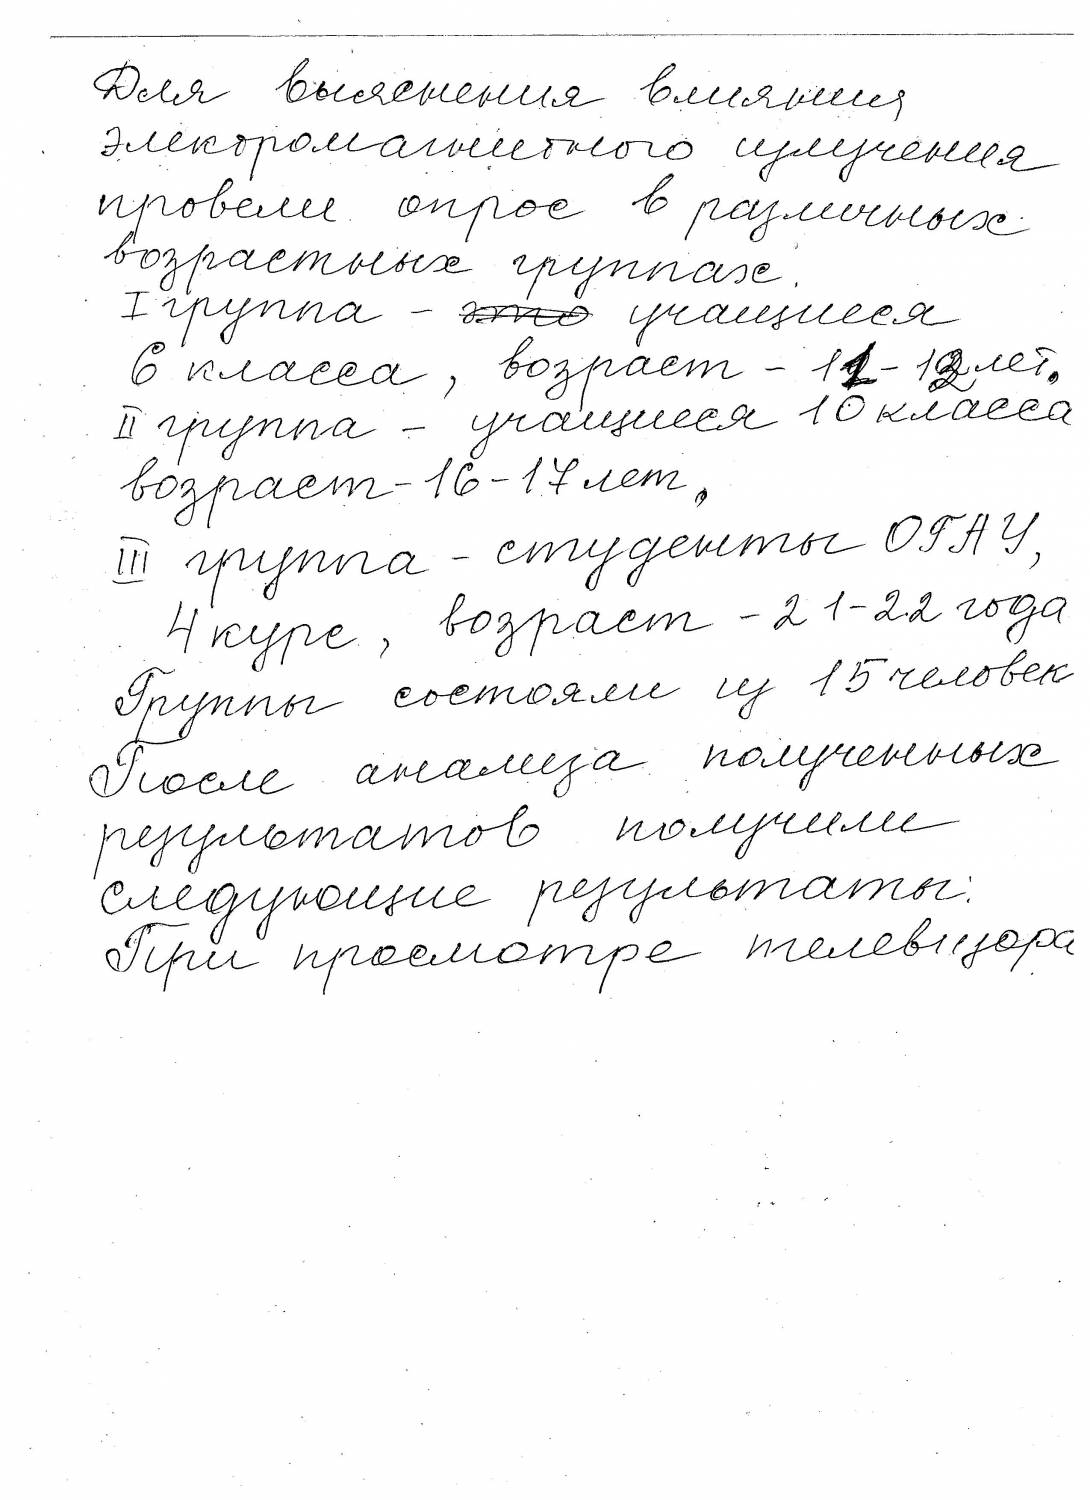 Для выяснения влияния
электромагнитного излучения
провели опрос в различных
возрастных группах.
I группа - это учащиеся
6 класса, возраст - 11-12 лет.
II группа - учащиеся 10 класса
возраст - 16-17 лет,
III группа - студенты ОГАУ,
4 курс, возраст - 21-22 года
Группы состояли из 15 человек
После анализа полученных
результатов получили
следующие результаты:
При просмотре телевизора